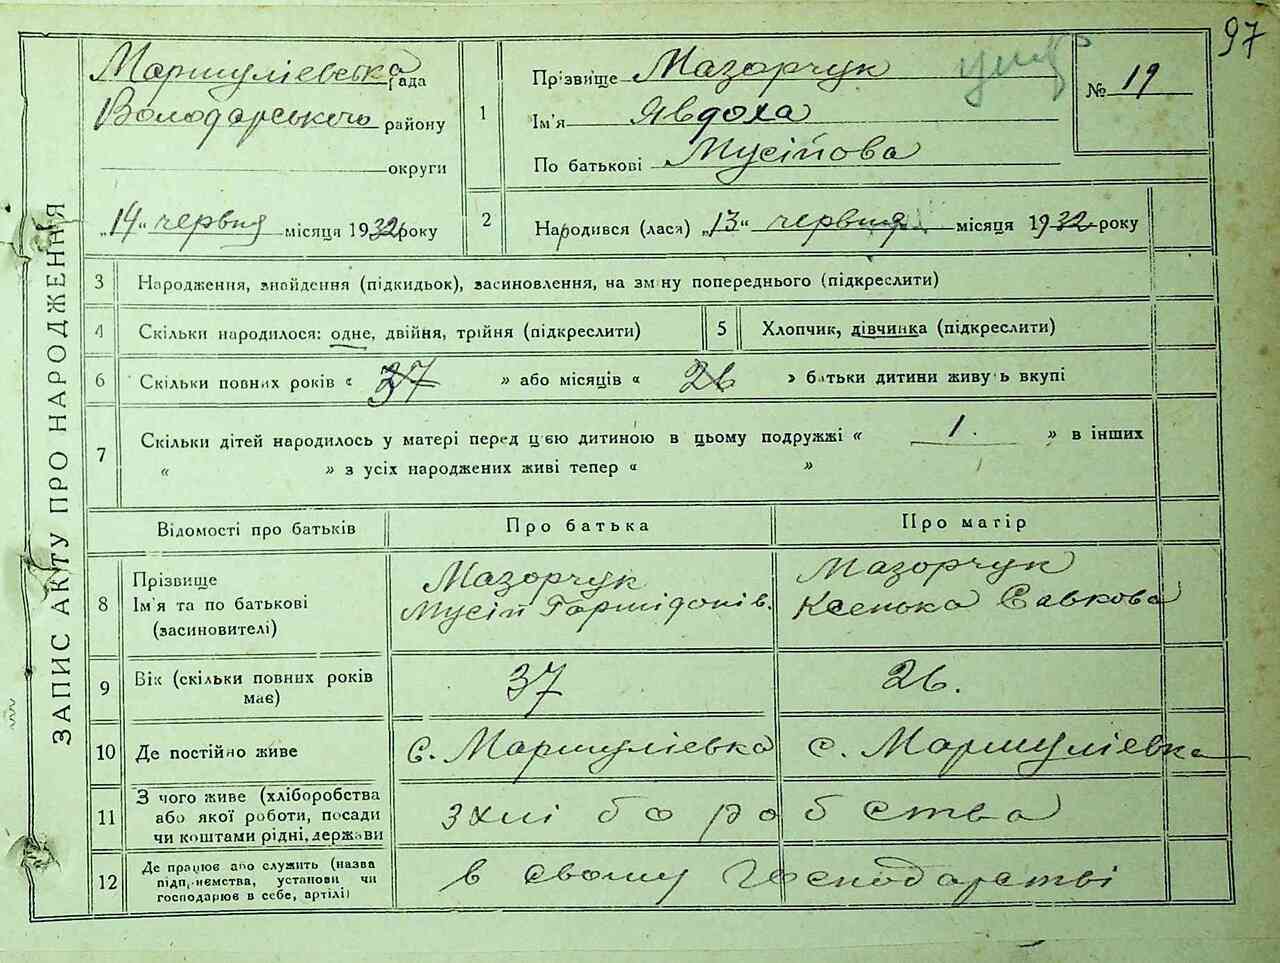 97
ЗАПИС АКТУ ПРО НАРОДЖЕННЯ
Мармуліевська рада
Володарського району
округи
„14“ червня місяця 1932 року
1
Прізвище Мазорчук
Ім'я Явдоха
По батькові Мусійова
№ 19
2
Народився (лася) „13“ червня місяця 1932 року
3 Народження, знайдення (підкидьок), засиновлення, на зміну попереднього (підкреслити)
4 Скільки народилося: одне, двійня, трійня (підкреслити)
5 Хлопчик, дівчинка (підкреслити)
6 Скільки повних років « 37 » або місяців « 26 » батьки дитини живуть вкупі
7 Скільки дітей народилось у матері перед цією дитиною в цьому подружжі « 1. » в інших
« » з усіх народжених живі тепер « »
Відомості про батьків Про батька Про матір
8 Прізвище
Ім'я та по батькові
(засиновителі)
Мазорчук
Мусій
Мазорчук
Ксенька Савкова
9 Вік (скільки повних років
має)
37
26.
10 Де постійно живе
с. Мармуліевка
с. Мармуліевка
11 З чого живе (хліборобства
або якої роботи, посади
чи коштами рідні, держави
з хліборобства
12 Де працює або служить (назва
підприємства, установи чи
господарює в себе, артілі)
в свому господарстві